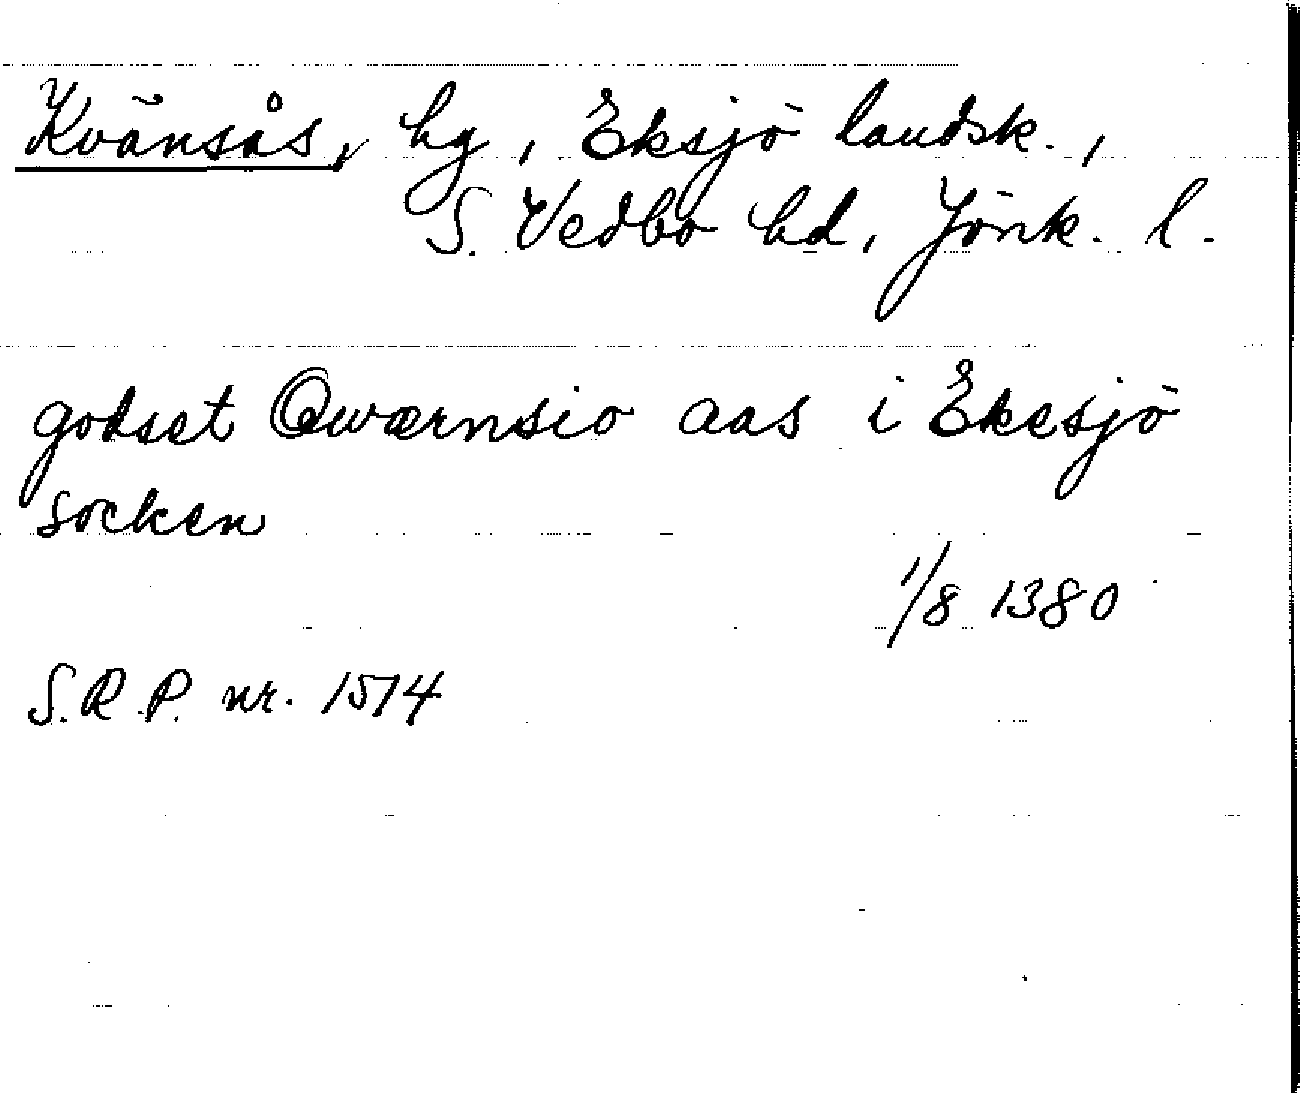 Kvänsås, hg, Eksjö landsk.,
S. Vedbo hd, Jönk. l.
godset Qwærnsio aas i Ekesjö
socken
1/8 1380
S.R.P. nr. 1514